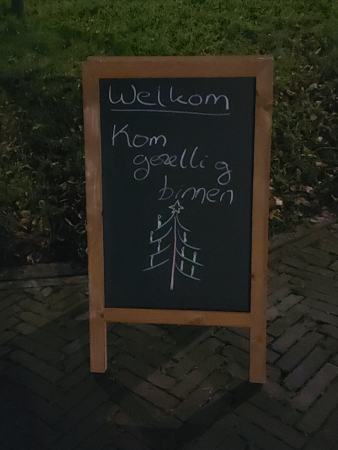 Welkom
Kom
gezellig
binnen